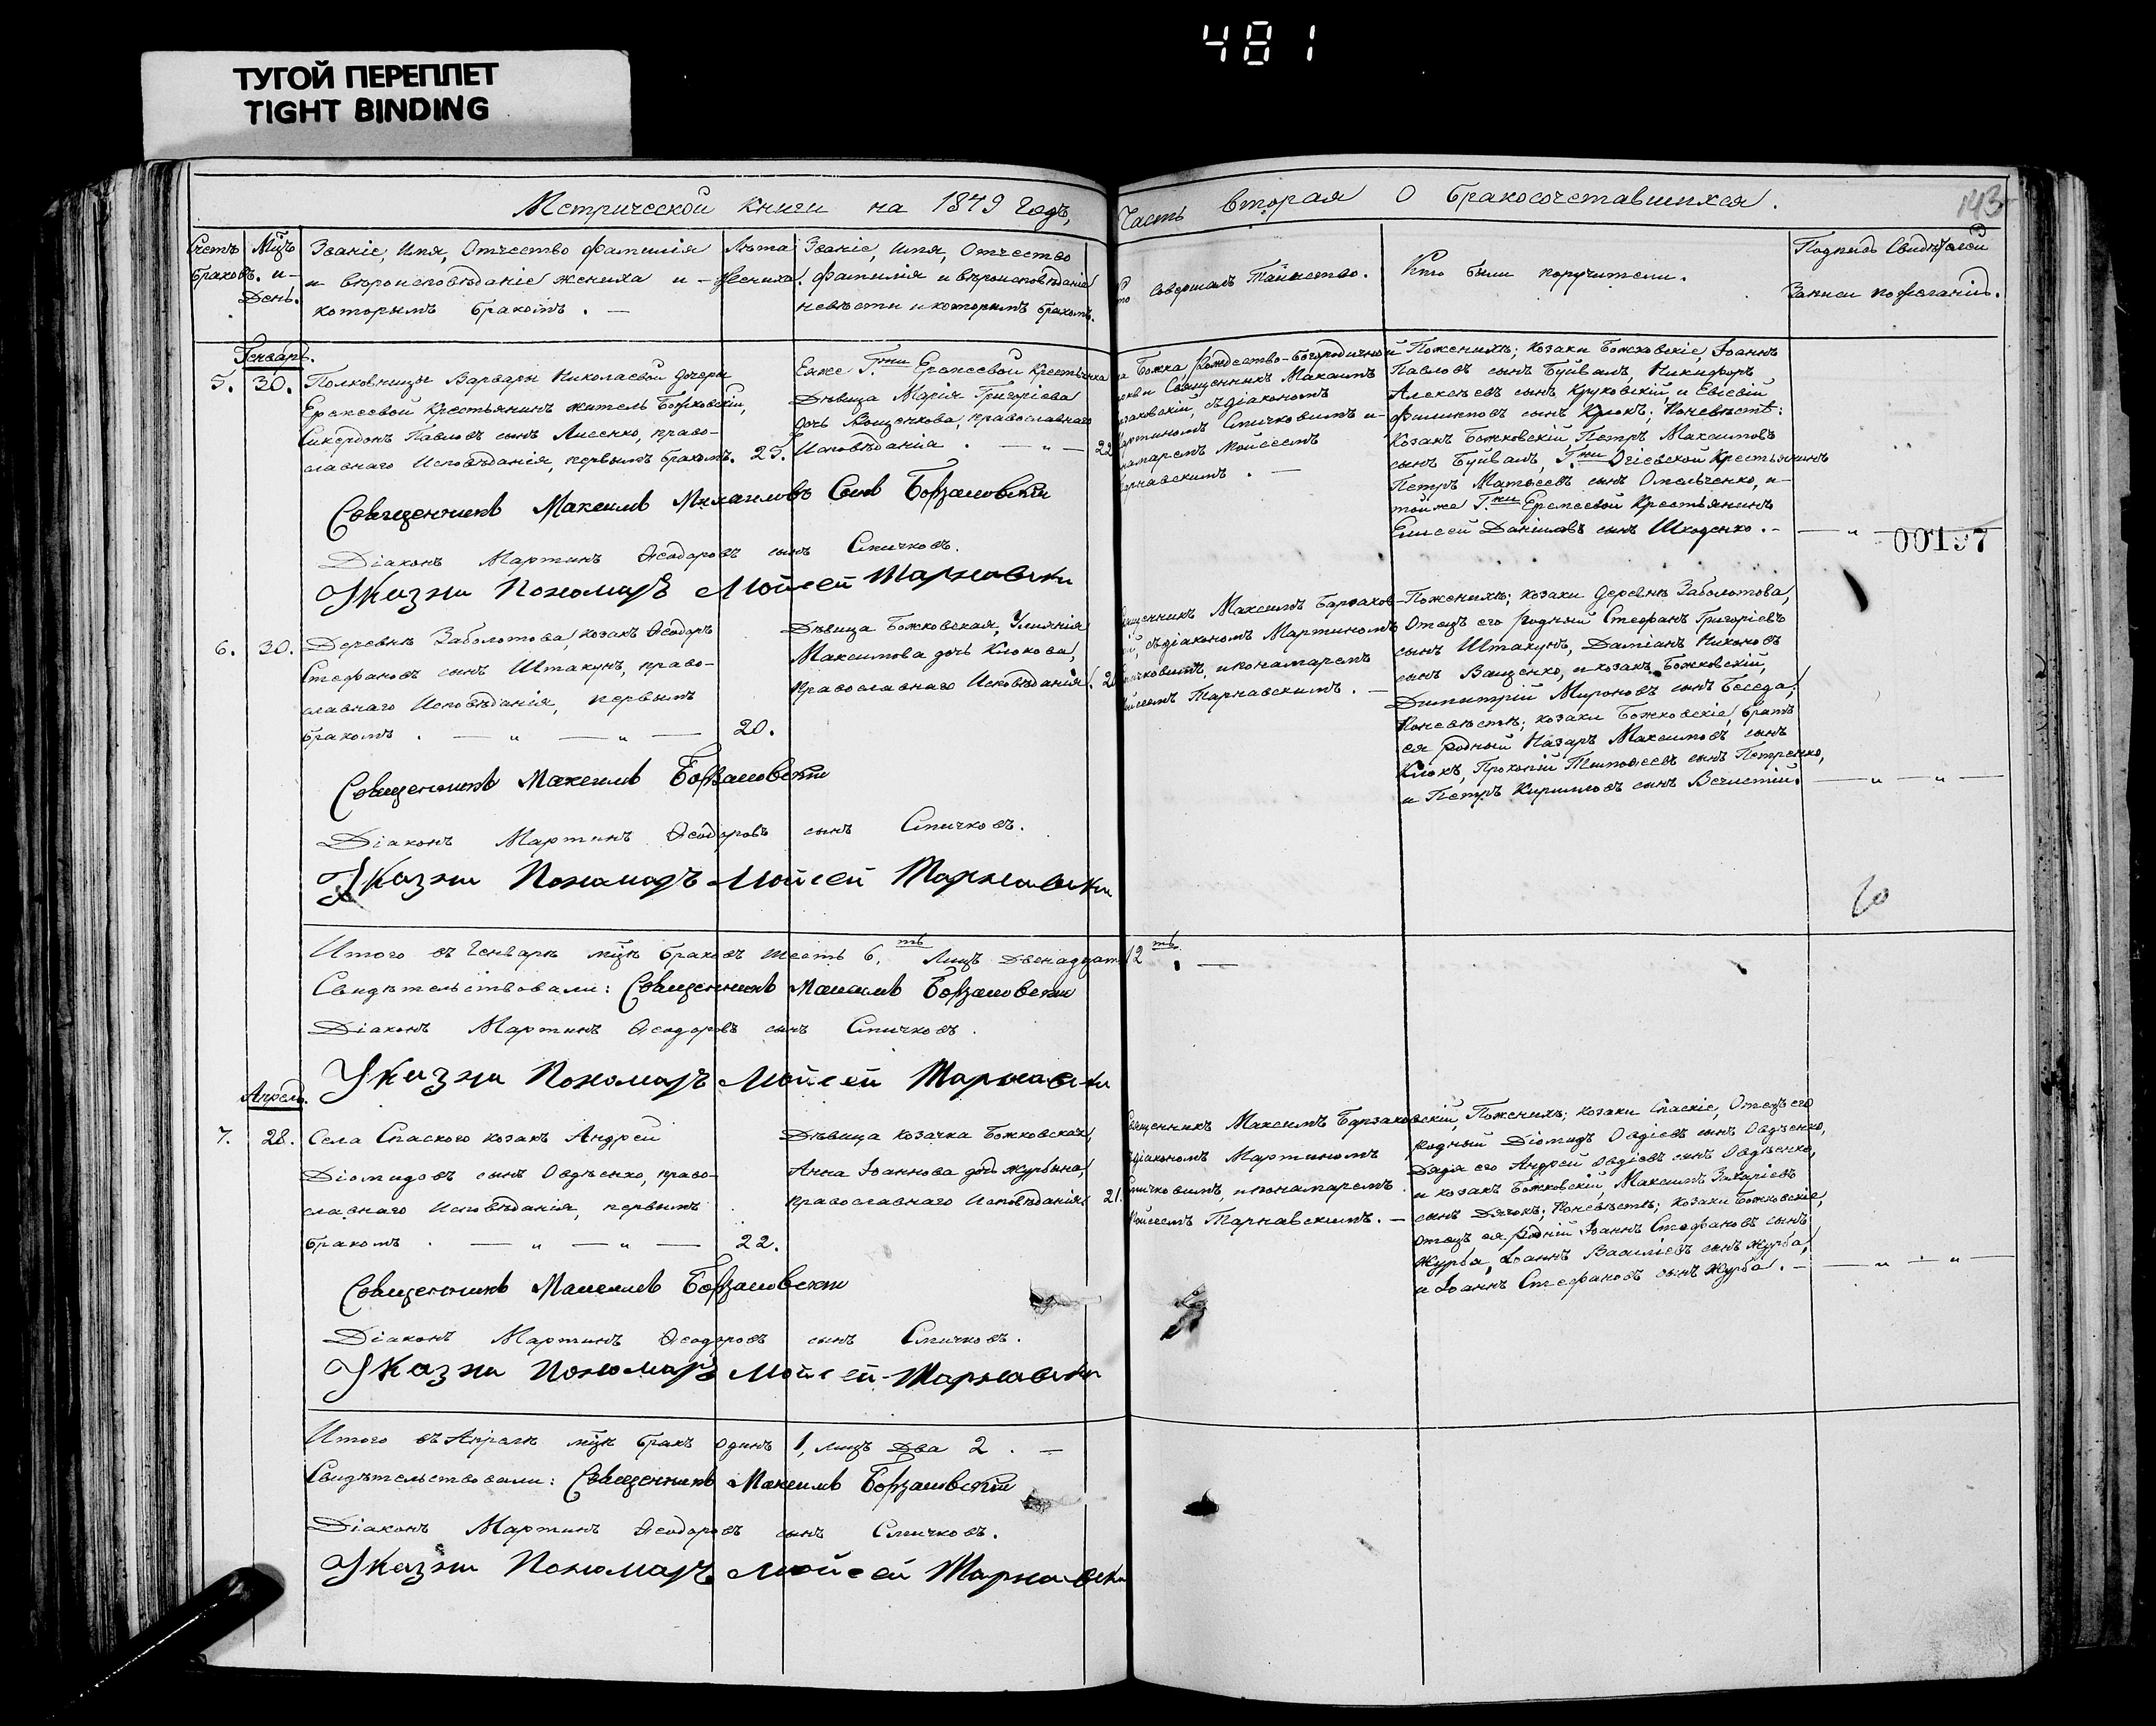 481
ТУГОЙ ПЕРЕПЛЕТ
TIGHT BINDING
Метрической книги на 1849 годъ,
Часть вторая о бракосочетавшихся.
143
Счетъ браковъ.
Мцъ и День.
Званіе, Имя, Отчество фамилія
и вѣроисповѣданіе жениха и
которымъ бракомъ.
Лѣта
жениха.
Званіе, имя, Отчество
фамилія и вѣроисповѣданіе
невѣсты и которымъ бракомъ.
Совершалъ Таинство.
Кто были поручители.
Подпись Свидѣтелей
Записи по желанію.
Генварь.
5. 30.
Полковницы Варвары Николаевой дочери
Крестьянинъ житель Божковскій,
Павловъ сынъ Лисенко, право-
славнаго Исповѣданія, первымъ бракомъ. 25.
Еяже Г.жи Крестьянка
Дѣвица Марія Григоріева
дочь Ващенкова, православнаго
Исповѣданія. — „ — 22
Божка, Рождество-Богородичной
Священникъ Максимъ
съ діакономъ
Спичковымъ и
Мойсеемъ
По женихѣ; козаки Божковскіе, Іоаннъ
Павловъ сынъ Буйвалъ, Никифоръ
Алексѣевъ сынъ Круковскій, и Евсевій
Филиповъ сынъ Клюкъ; По невѣстѣ:
Козакъ Божковскій Петръ Максимовъ
сынъ Буйвалъ, Г.жи Огіевской Крестьянинъ
Петръ Матвеевъ сынъ Омельченко, и
тойже Г.жи Крестьянинъ
Елисей Даніиловъ сынъ Шкоденко. —
00197
Священникъ Максимъ Михаиловъ Сынъ Борзаковскій
Діаконъ Мартинъ Ѳеодоровъ сынъ Спичковъ.
Пономаръ Мойсей Тарнавскій
6. 30.
Деревнѣ Заболотова, козакъ Ѳеодоръ
Стефановъ сынъ Штакунъ, право-
славнаго Исповѣданія, первымъ
бракомъ. — „ — „ — 20.
Дѣвица Божковская, Уліянія
Максимова дочь Клюкова,
православнаго Исповѣданія. 20
Максимъ Борзаков-
съ діакономъ Мартиномъ
и понамаремъ
Тарнавскимъ. —
По женихѣ; козаки деревнѣ Заболотова,
Отецъ его родный Стефанъ Григоріевъ
сынъ Штакунъ, Даміанъ Никоновъ
сынъ Ващенко, и козакъ Божковскій,
Димитрій Мироновъ сынъ Беседа;
По невѣстѣ; козаки Божковскіе, братъ
ея родный Назаръ Максимовъ сынъ
Клюкъ, Прокопій Тимофеевъ сынъ Петренко,
и Петръ Кириловъ сынъ
— „ — „ —
Священникъ Максимъ Борзаковскій
Діаконъ Мартинъ Ѳеодоровъ сынъ Спичковъ.
Пономаръ Мойсей Тарнавскій
Итого въ Генварѣ мцѣ браковъ шесть 6. Лицъ двенадцать 12
Свидѣтельствовали: Священникъ Максимъ Борзаковскій
Діаконъ Мартинъ Ѳеодоровъ сынъ Спичковъ.
Пономаръ Мойсей Тарнавскій
Апрель.
7. 28.
Села Спаского козакъ Андрей
Діомидовъ сынъ Овдѣенко, право-
славнаго Исповѣданія, первымъ
бракомъ. — „ — „ — 22.
Дѣвица козачка Божковская,
Анна Іоаннова дочь Журбина,
православнаго Исповѣданія 21.
Священникъ Максимъ Борзаковскій,
діакономъ Мартиномъ
Спичковымъ, и понамаремъ
Мойсеемъ Тарнавскимъ. —
По женихѣ; козаки Спаскіе, Отецъ его
родный Діомидъ Овдіевъ сынъ Овдѣенко,
Дядя его Андрей Овдіевъ сынъ Овдѣенко,
и козакъ Божковскій, Максимъ Захаріевъ
сынъ Дячокъ; По невѣстѣ; козаки Божковскіе,
Отецъ ея родній Іоаннъ Стефановъ сынъ
Журба, Іоаннъ Василіевъ сынъ Журба,
и Іоаннъ Стефановъ сынъ Журба. —
— „ — „ —
Священникъ Максимъ Борзаковскій
Діаконъ Мартинъ Ѳеодоровъ сынъ Спичковъ.
Пономаръ Мойсей Тарнавскій
Итого въ Апрелѣ мцѣ бракъ Одинъ 1, лицъ Два 2. —
Свидѣтельствовали: Священникъ Максимъ Борзаковскій
Діаконъ Мартинъ Ѳеодоровъ сынъ Спичковъ.
Пономаръ Мойсей Тарнавскій